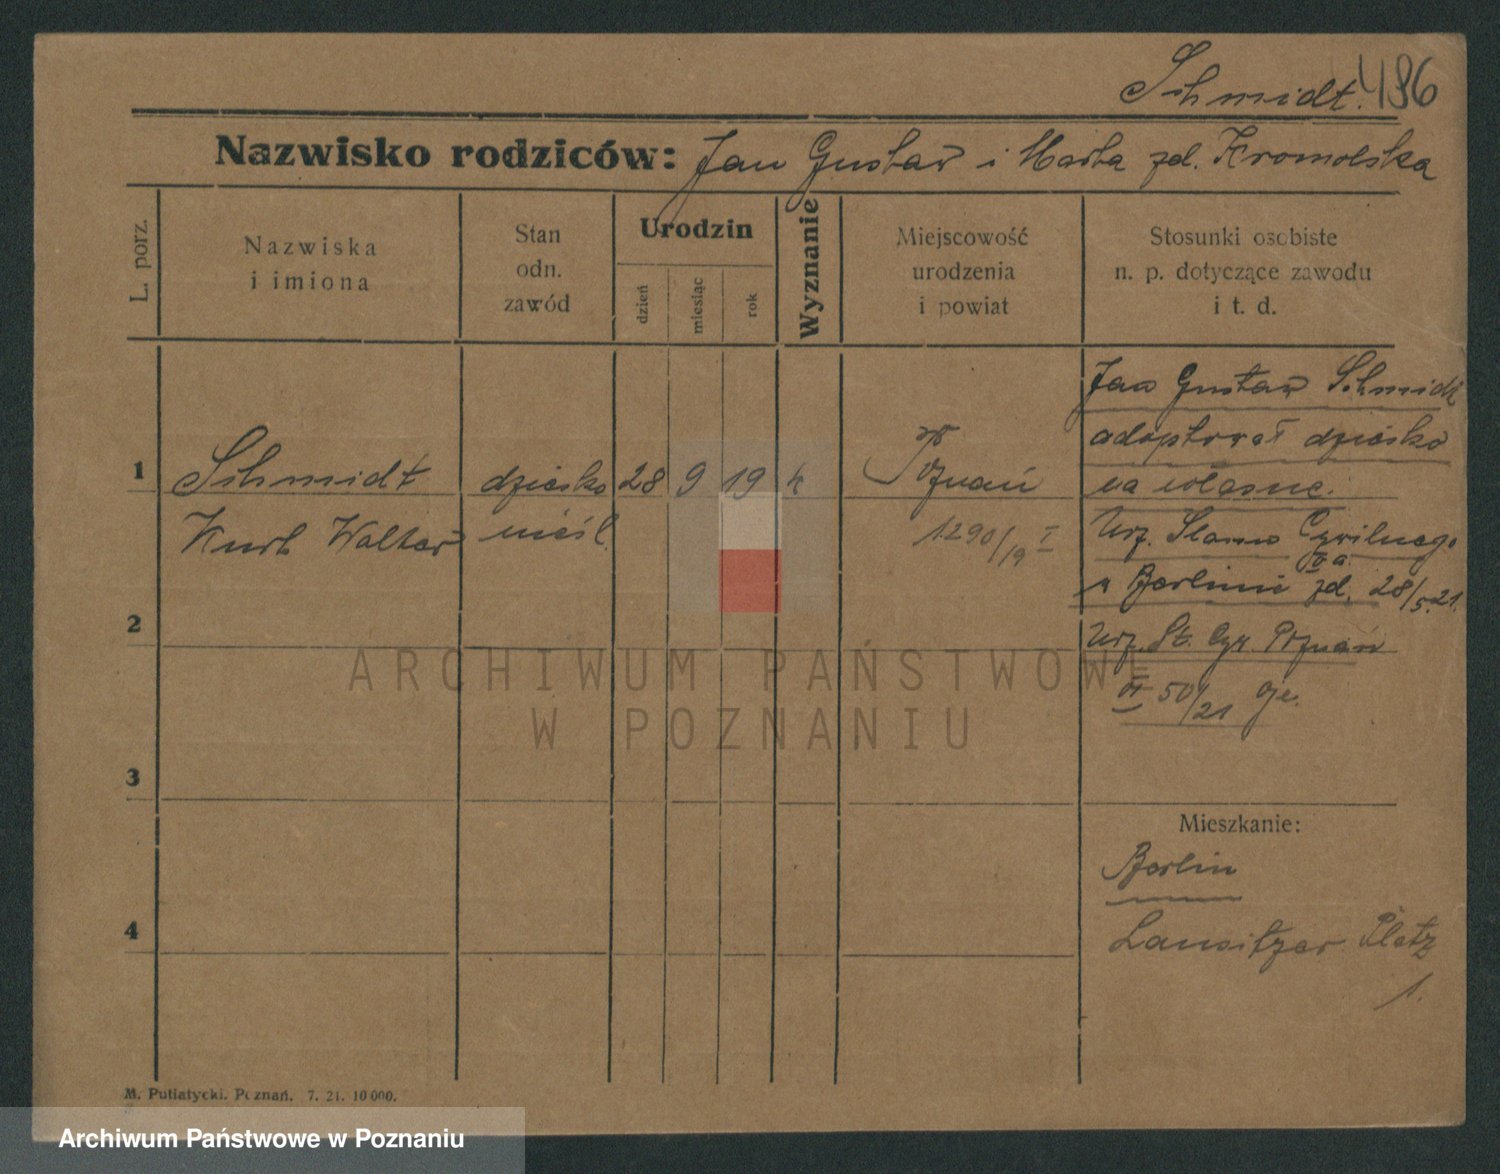 Schmidt. 486
Nazwisko rodziców: Jan Gustaw i Marta zd. Kromolska
L. porz.
Nazwiska
i imiona
Stan
odn.
zawód
Urodzin
dzień
miesiąc
rok
Wyznanie
Miejscowość
urodzenia
i powiat
Stosunki osobiste
n. p. dotyczące zawodu
i t. d.
1
Schmidt
Kurt Walter
dziecko
nieśl.
28 9 19 k
Poznań
1290/19 I
Jan Gustaw Schmidt
adoptował dziecko
na własne.
Urz. Stanu Cywilnego
Va
w Berlinie zd. 28/5.21.
Urz. St. Cyw. Poznań
VI 50/21
2
3
4
Mieszkanie:
Berlin
Lausitzer Platz
1.
ARCHIWUM PAŃSTWOWE
W POZNANIU
M. Putiatycki. Poznań. 7. 21. 10 000.
Archiwum Państwowe w Poznaniu